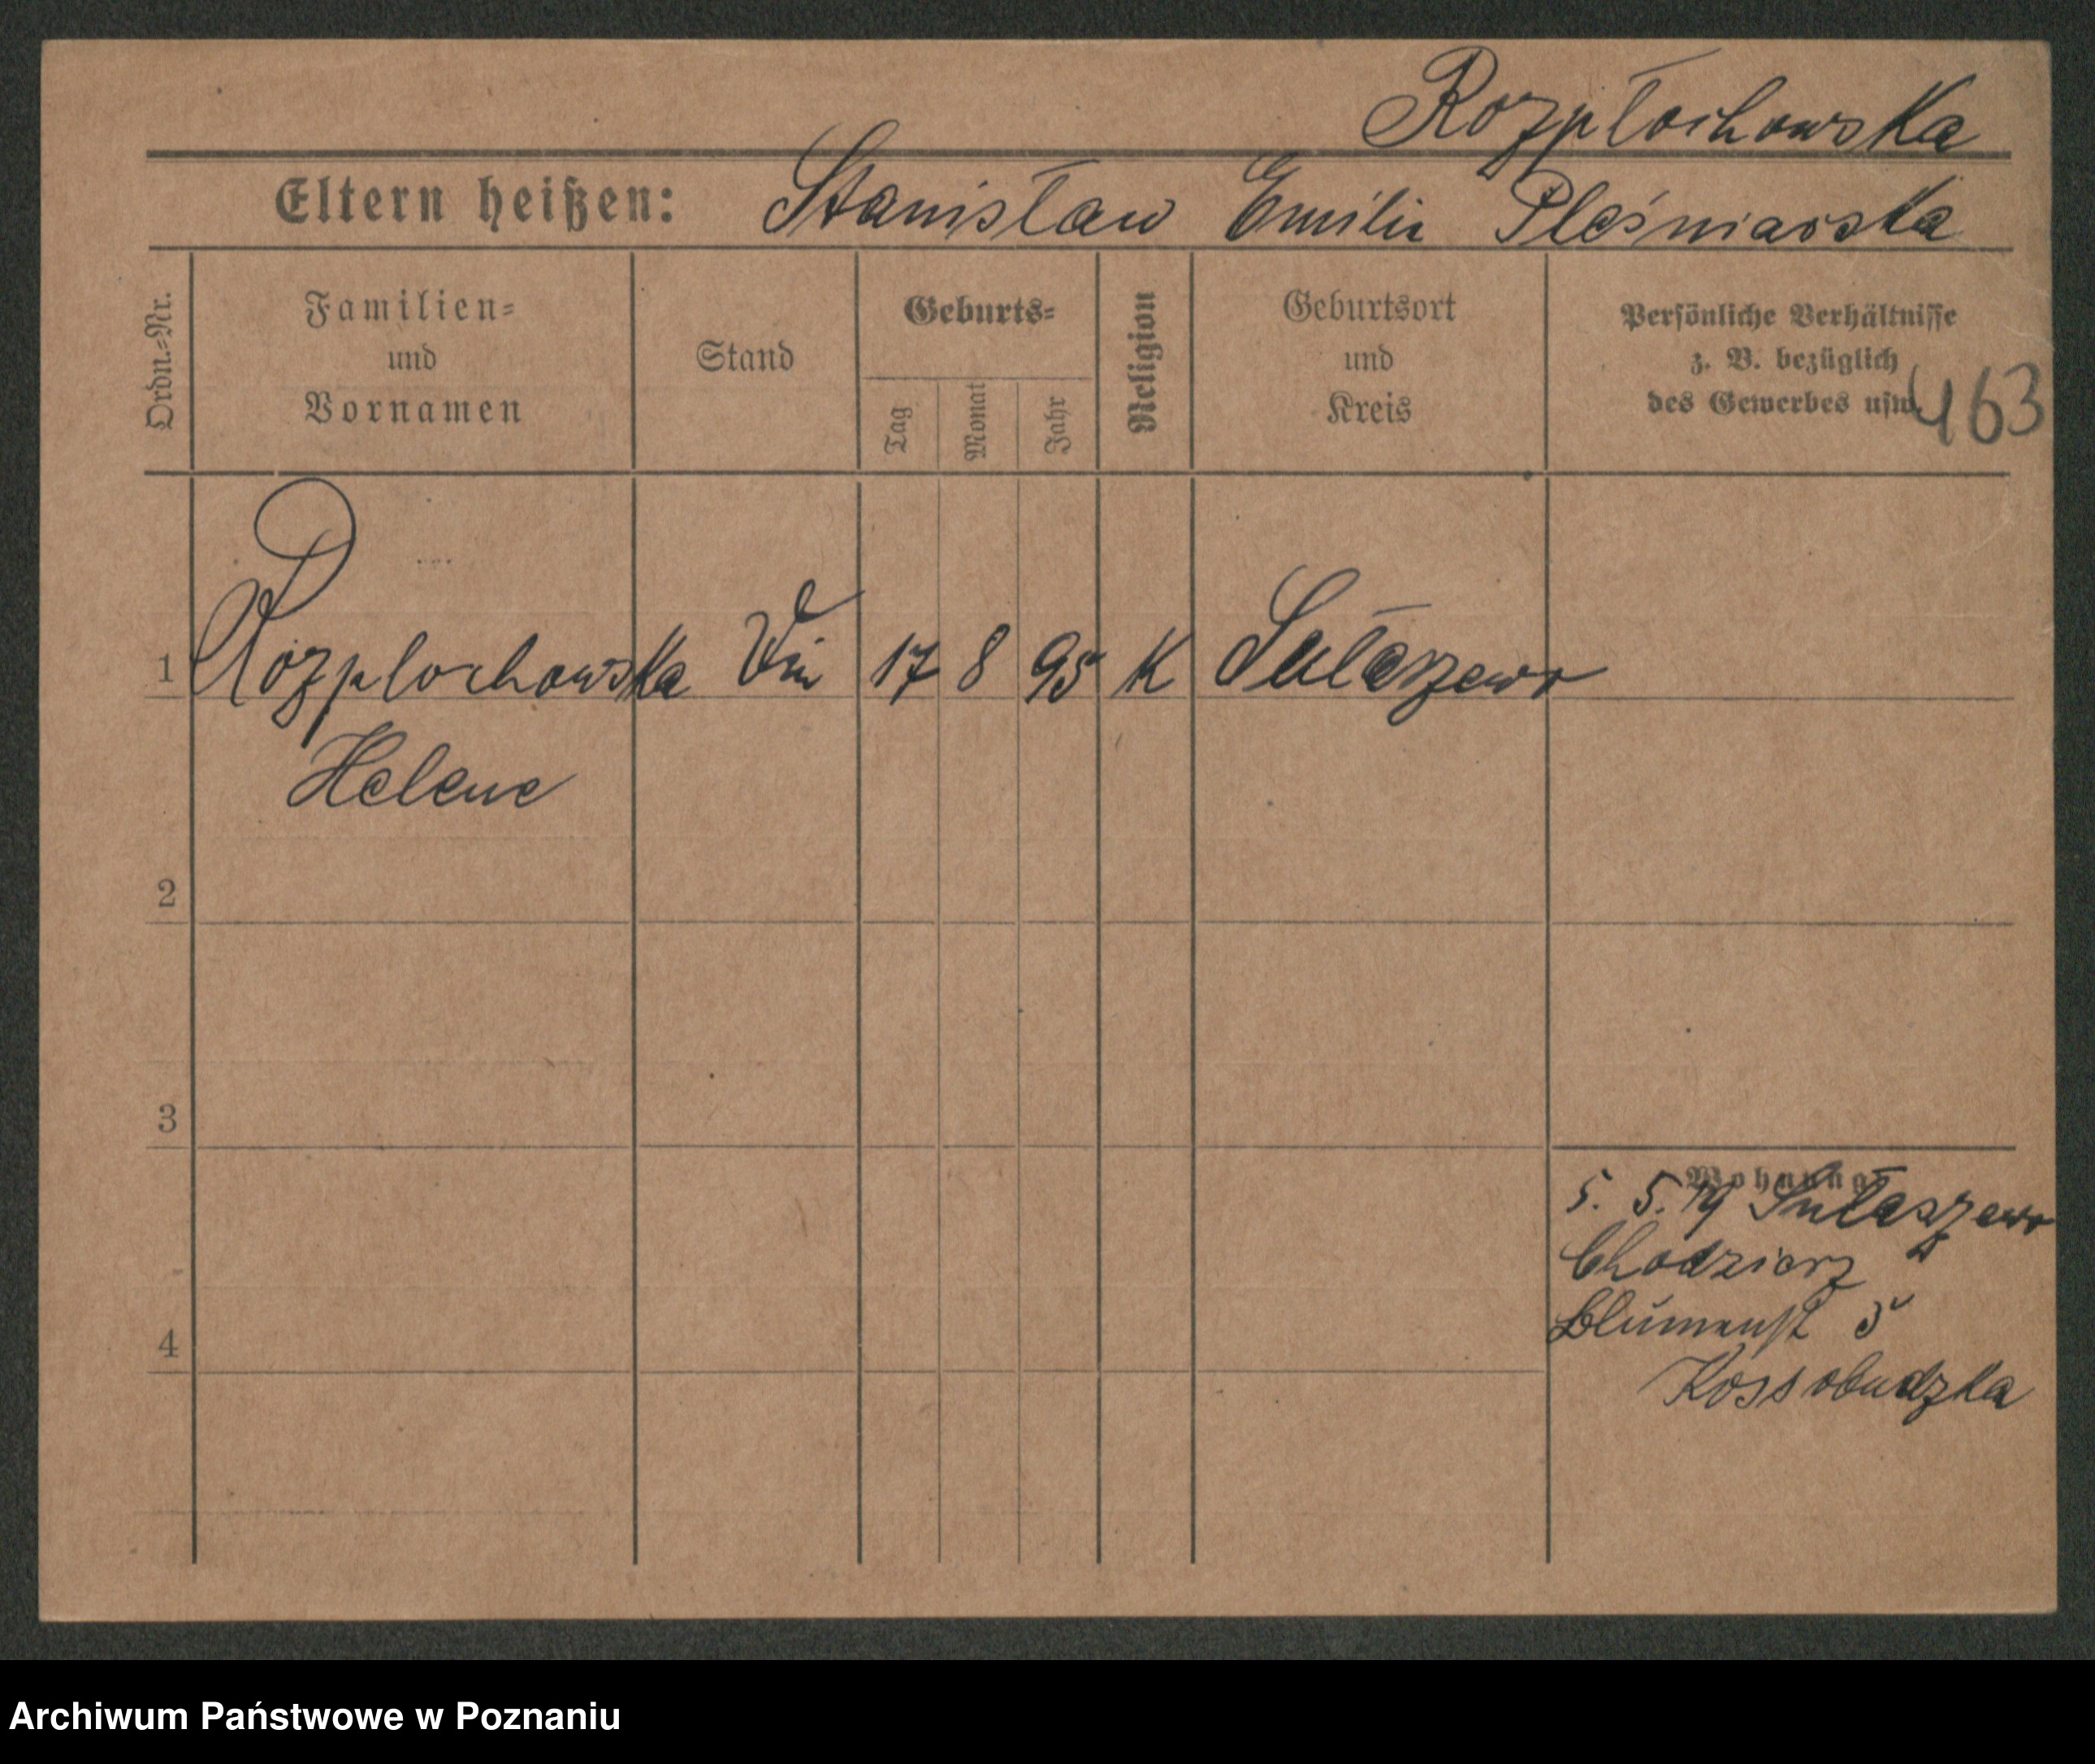 Rozpłochowska
Eltern heißen: Stanisław Emilie Pleśniarska
Ordn.-Nr.
Familien- und Vornamen
Stand
Geburts-
Tag
Monat
Jahr
Religion
Geburtsort und Kreis
Persönliche Verhältnisse
z. B. bezüglich
des Gewerbes usw.
463
1 Rozplochowska 17 8 95 K Sułaszewo
Helene
2
3
4
Wohnung
5. 5. 19 Sułaszewo
Chodzierz
Blumenst 5
Kossobudzka
Archiwum Państwowe w Poznaniu